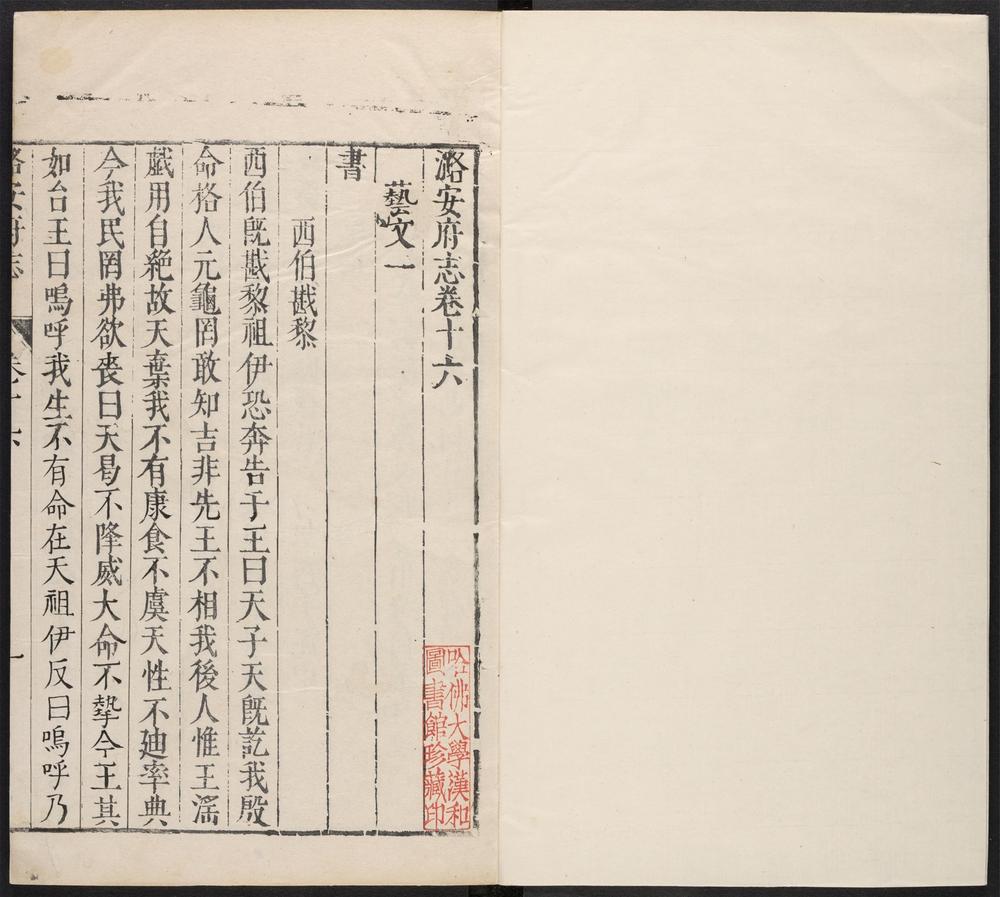 潞安府志卷十六
藝文一
書
西伯戡黎
西伯旣戡黎祖伊恐奔告于王曰天子天旣訖我殷
命格人元龜罔敢知吉非先王不相我後人惟王淫
戲用自絕故天棄我不有康食不虞天性不廸率典
今我民罔弗欲喪曰天曷不降威大命不摯今王其
如台王曰嗚呼我生不有命在天祖伊反曰嗚呼乃
潞安府志
卷十六
一
哈佛大學漢和
圖書館珍藏印